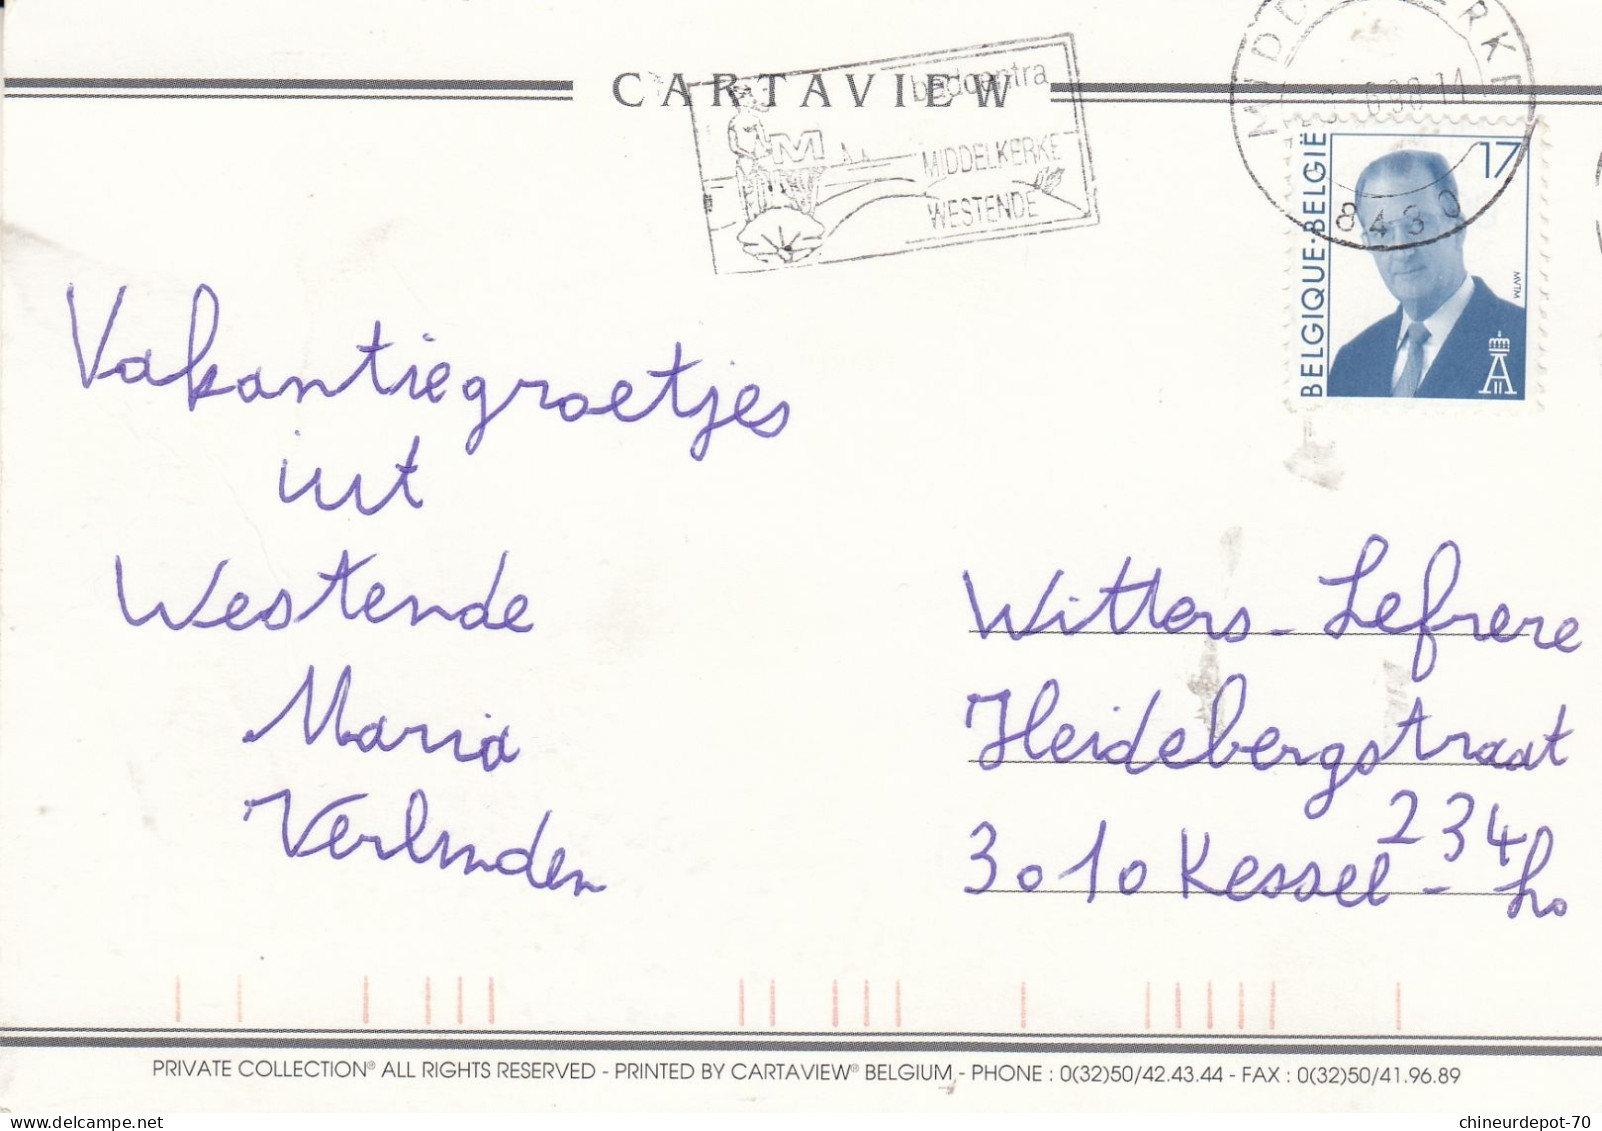 CARTAVIEW
badcentra
MIDDELKERKE
WESTENDE
8430
17
BELGIQUE·BELGIË
MVTM
Vakantiegroetjes
iut
Westende
Maria
Verlinden
Witters - Lefrere
Heidebergstraat
234
3010 Kessel - Lo
PRIVATE COLLECTION® ALL RIGHTS RESERVED - PRINTED BY CARTAVIEW® BELGIUM - PHONE : 0(32)50/42.43.44 - FAX : 0(32)50/41.96.89
chineurdepot-70